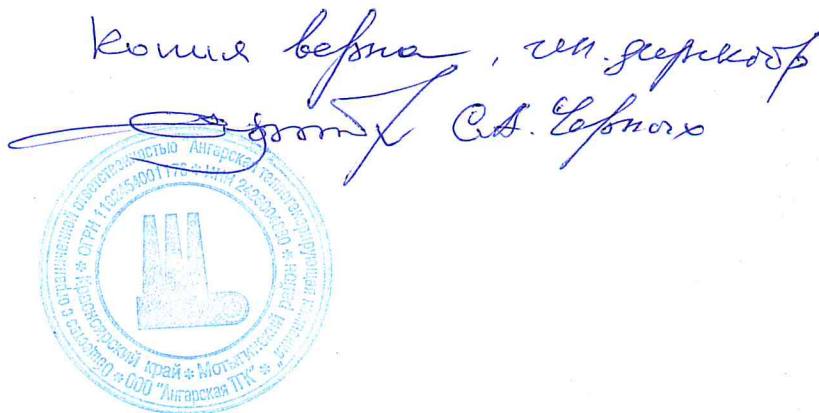 Копия верна, ген. директор
С.А. Черных
Общество с ограниченной ответственностью "Ангарская теплогенерирующая компания"
* ООО "Ангарская ТГК" *
Красноярский край * Мотыгинский район * ОГРН * ИНН